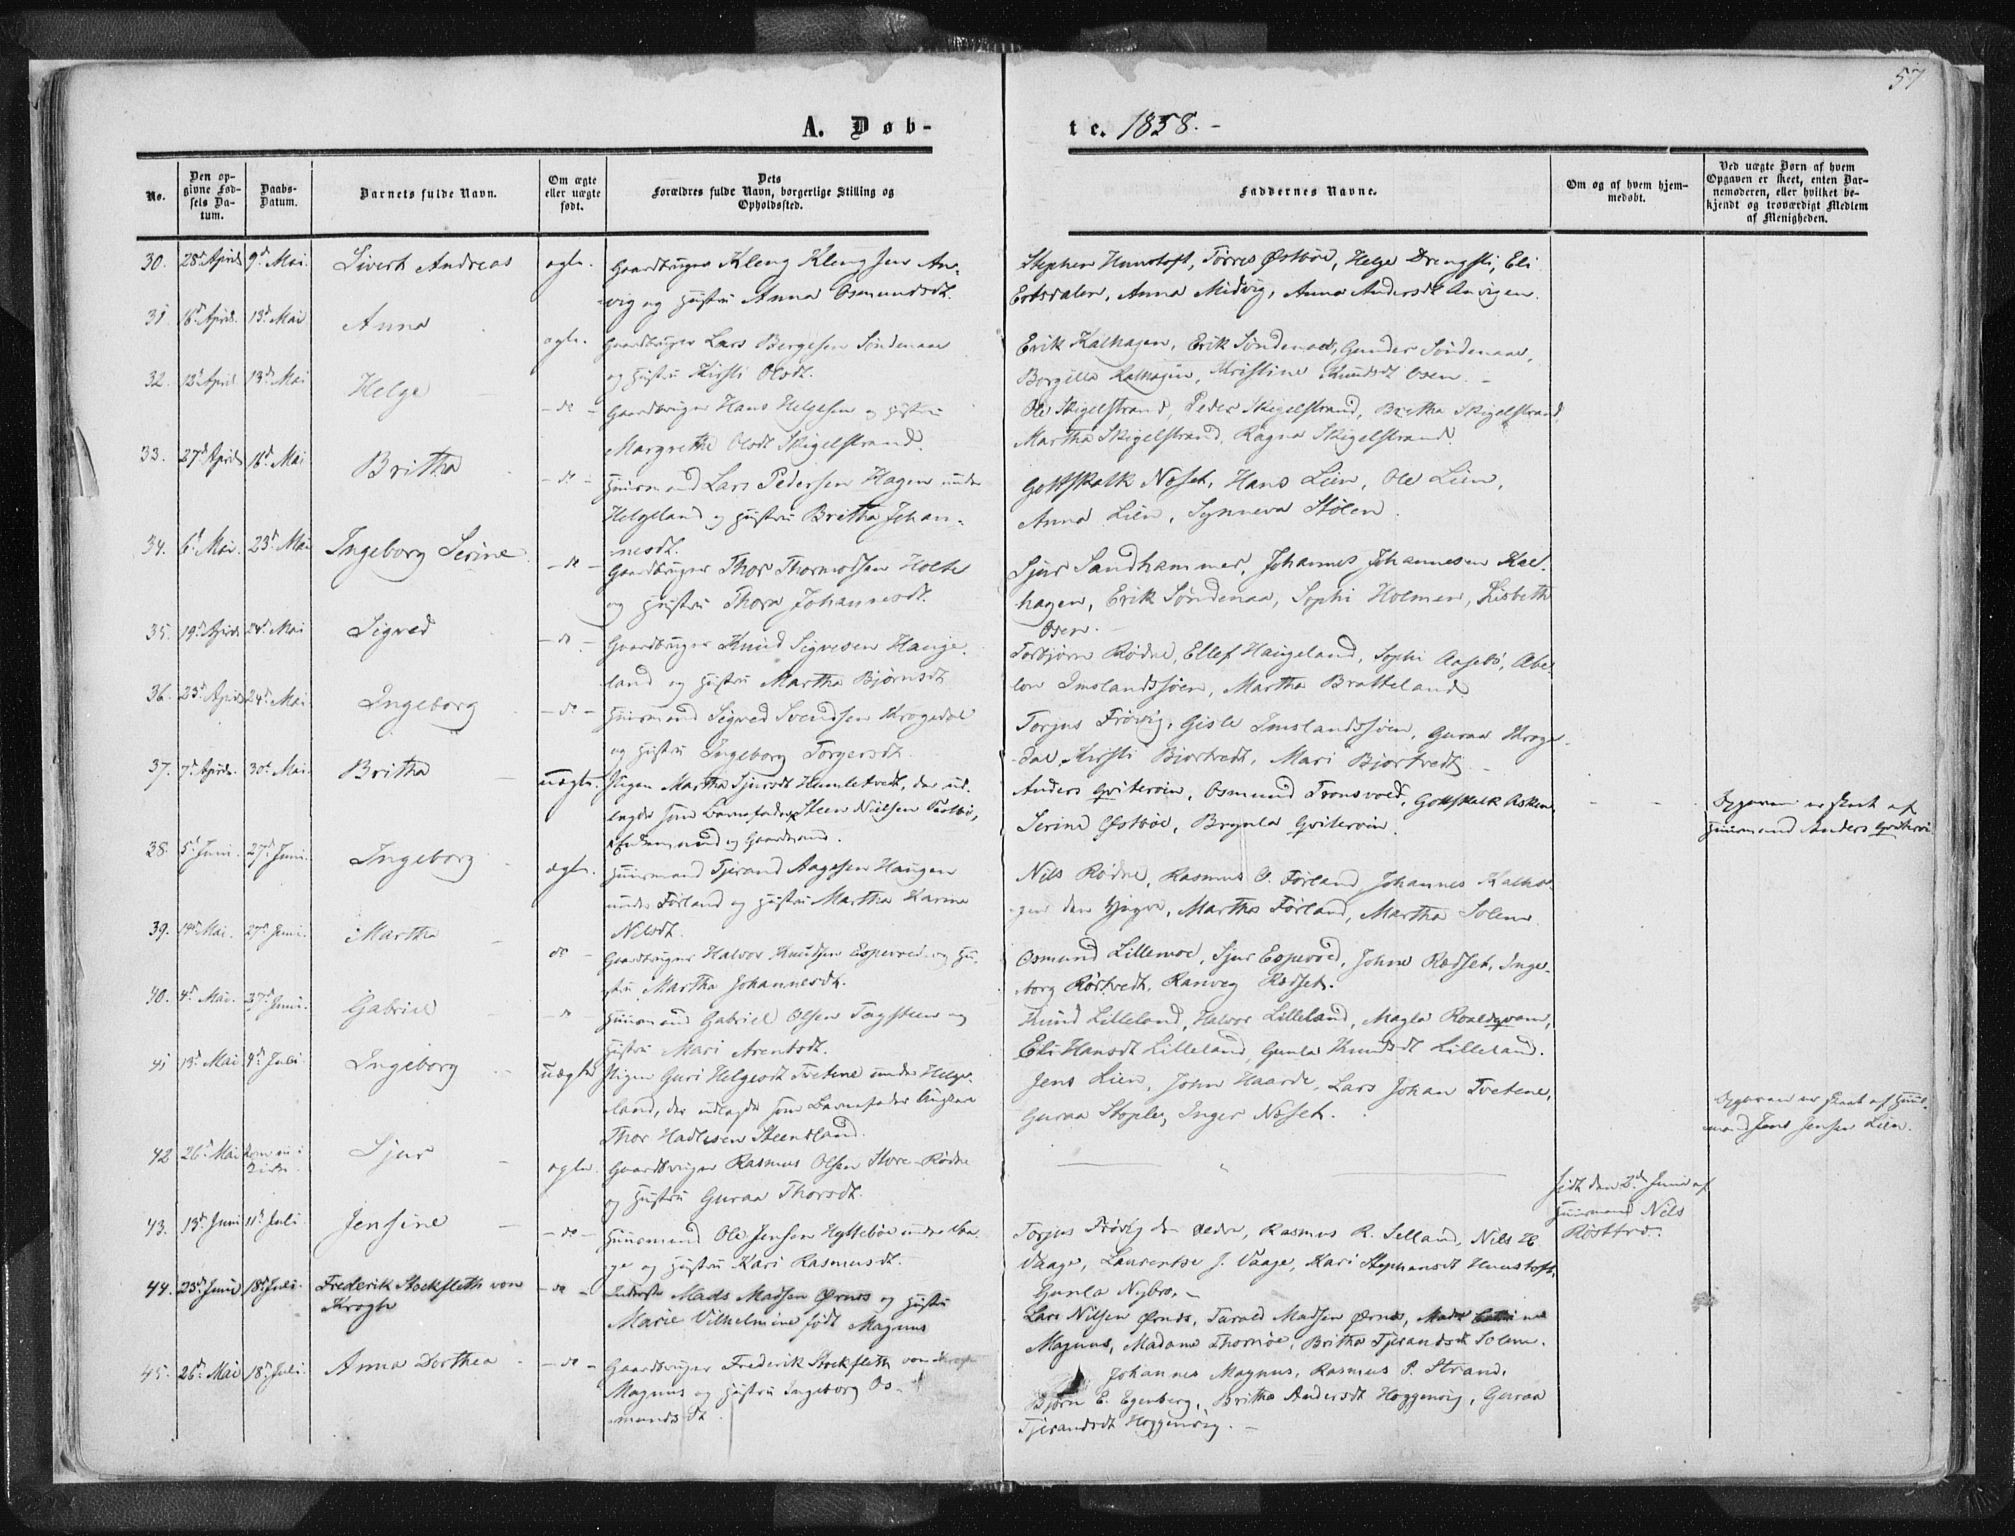 57
A. Døb-
te. 1858.-
No.
Den op-
givne Fød-
sels Da-
tum.
Daabs-
Datum.
Barnets fulde Navn.
Om ægte
eller uægte
født.
Dets
Forældres fulde Navn, borgerlige Stilling og
Opholdssted.
Faddernes Navne.
Om og af hvem hjem-
medøbt.
Ved uægte Børn af hvem
Opgaven er skeet, enten Bar-
nemoderen, eller hvilket be-
kjendt og troværdigt Medlem
af Menigheden.
30. 28d April 9d Mai. Sivert Andreas ægte. Gaardbruger Kleng Klengsen An-
vig og Hustru Anna Osmundsdt.
Stephen Hunstoft, Tørres Østbøe, Helge Drengsti, Eli
Ertsdalen, Anna Midvig, Anna Andersdt Anvigen.
31. 16d April. 13d Mai Anna ægte. Gaardbruger Lars Bergesen Søndenaa
og Hustru Kirsti Olsdt.
Erik Kalhagen, Erik Søndenaa, Gunder Søndenaa,
Borgilla Kalhagen, Kristine Knudsdt Osen. -
32. 12d April 13d Mai Helge - do - Gaardbruger Hans Helgesen og Hustru
Margrethe Olsdt Skigelstrand.
Ole Skigelstrand, Peder Skigelstrand, Britha Skigelstrand,
Martha Skigelstrand, Ragna Skigelstrand.
33. 27d April 16d Mai Britha - do - Huusmand Lars Pedersen Hagen under
Helgeland og Hustru Britha Johan-
nesdt.
Gottskalk Næset, Hans Lien, Ole Lien,
Anna Lien, Synneva Stølen.
34. 6d Mai. 23d Mai Ingeborg Serine - do - Gaardbruger Thor Thormodsen Holte
og Hustru Thora Johannesdt.
Sjur Sandhammer, Johannes Johannesen Kal-
hagen, Erik Søndenaa, Sophi Holmen, Lisbeth
Osen.
35. 19d April 24d Mai Sigved - do - Gaardbruger Knud Sigvesen Hauge-
land og Hustru Martha Bjørnsdt
Torbjørn Rødne, Ellef Haugeland, Sophi Aasebø, Abe-
lon Imslandssjøen, Martha Bratteland
36. 23d April 24d Mai Ingeborg - do - Huusmand Sigved Svendsen Krogedal
og Hustru Ingeborg Torgersdt.
Torjus Frøvig, Gisle Imslandssjøen, Guraa Kroge-
dal, Kirsti Bjortvedt, Mari Bjortvedt. -
37. 7d April. 30d Mai. Britha - uægte. Pigen Martha Sjursdt Humletvedt, der ud-
lagde som Barnefader Steen Nielsen
Enkemand og Gaardmand.
Anders Qvitevin, Osmund Tronsvold, Gottskalk Asken
Serina Østbøe, Brynla Qvitevin.
- - Opgaven er skeet af
Huusmand Anders Qvitevi.
38. 5d Juni. 27d Juni. Ingeborg ægte. Huusmand Tjerand Aagesen Haugen
under Førland og Hustru Martha Karine
Nilsdt.
Nils Rødne, Rasmus O. Førland, Johannes Kalha-
gen den yngre, Martha Førland, Martha Solem
39. 14d Mai. 27d Juni. Martha - do - Gaardbruger Halvor Knudsen Espevold og Hu-
stru Martha Johannesdt.
Osmund Lillemoe, Sjur Espevold, John Rødset, Inge-
borg Rørtvedt, Ranveg Rødset.
40. 4d Mai. 27d Juni. Gabriel - do Huusmand Gabriel Olsen Tagsteen og
Hustru Mari Arentsdt.
Knud Lilleland, Halvor Lilleland, Magla Roaldqvam,
Eli Hansdt Lilleland, Gunla Knudsdt Lilleland.
41 13d Mai 9d Juli. Ingeborg - uægte Pigen Guri Helgesdt Tvetene under Helge-
land, der udlagde som Barnefader Ungkarl
Thor Hadlesen Steensland.
Jens Lien, John Haarde, Lars Johan Tvetene,
Guraa Stople, Inger Næset.
Opgaven er skeet af Huus-
mand Jens Jensen Lien.
42 26d Mai Kom ei i
Kirke. Sjur - ægte. Gaardbruger Rasmus Olsen Store-Rødne
og Hustru Guraa Thorsdt.
- " -
døbt den 2d Juni af
Huusmand Nils
43. 13d Juni 11d Juli Jensine - - do - Huusmand Ole Jensen Hyttebøe under Vaa-
ge og Hustru Kari Rasmusdt.
Torjus Frøvig den ældre, Rasmus R. Selland, Nils H.
Vaage, Laurentse J. Vaage, Kari Stephansdt Hunstoft,
Gunla Nybro, -
44. 23d Juni 18d Juli. Frederik Stockfleth von
Krogh - do - Inderst Mads Madsen Ørnes og Hustru
Marie Vilhelmine født Magnus
Lars Nilsen Ørnes, Tarald Madsen Ørnes,
Magnus, Madame Thornøe, Britha Tjerandsdt Solem.
45. 26d Mai 18d Juli. Anna Dorthea - do - Gaardbruger Frederik Stockfleth von Krogh
Magnus og Hustru Ingeborg Os-
mundsdt.
Johannes Magnus, Rasmus P. Strand,
Bjørn E. Egenberg, Britha Andersdt Hoggenvig, Guraa
Tjerandsdt Hoggenvig. -